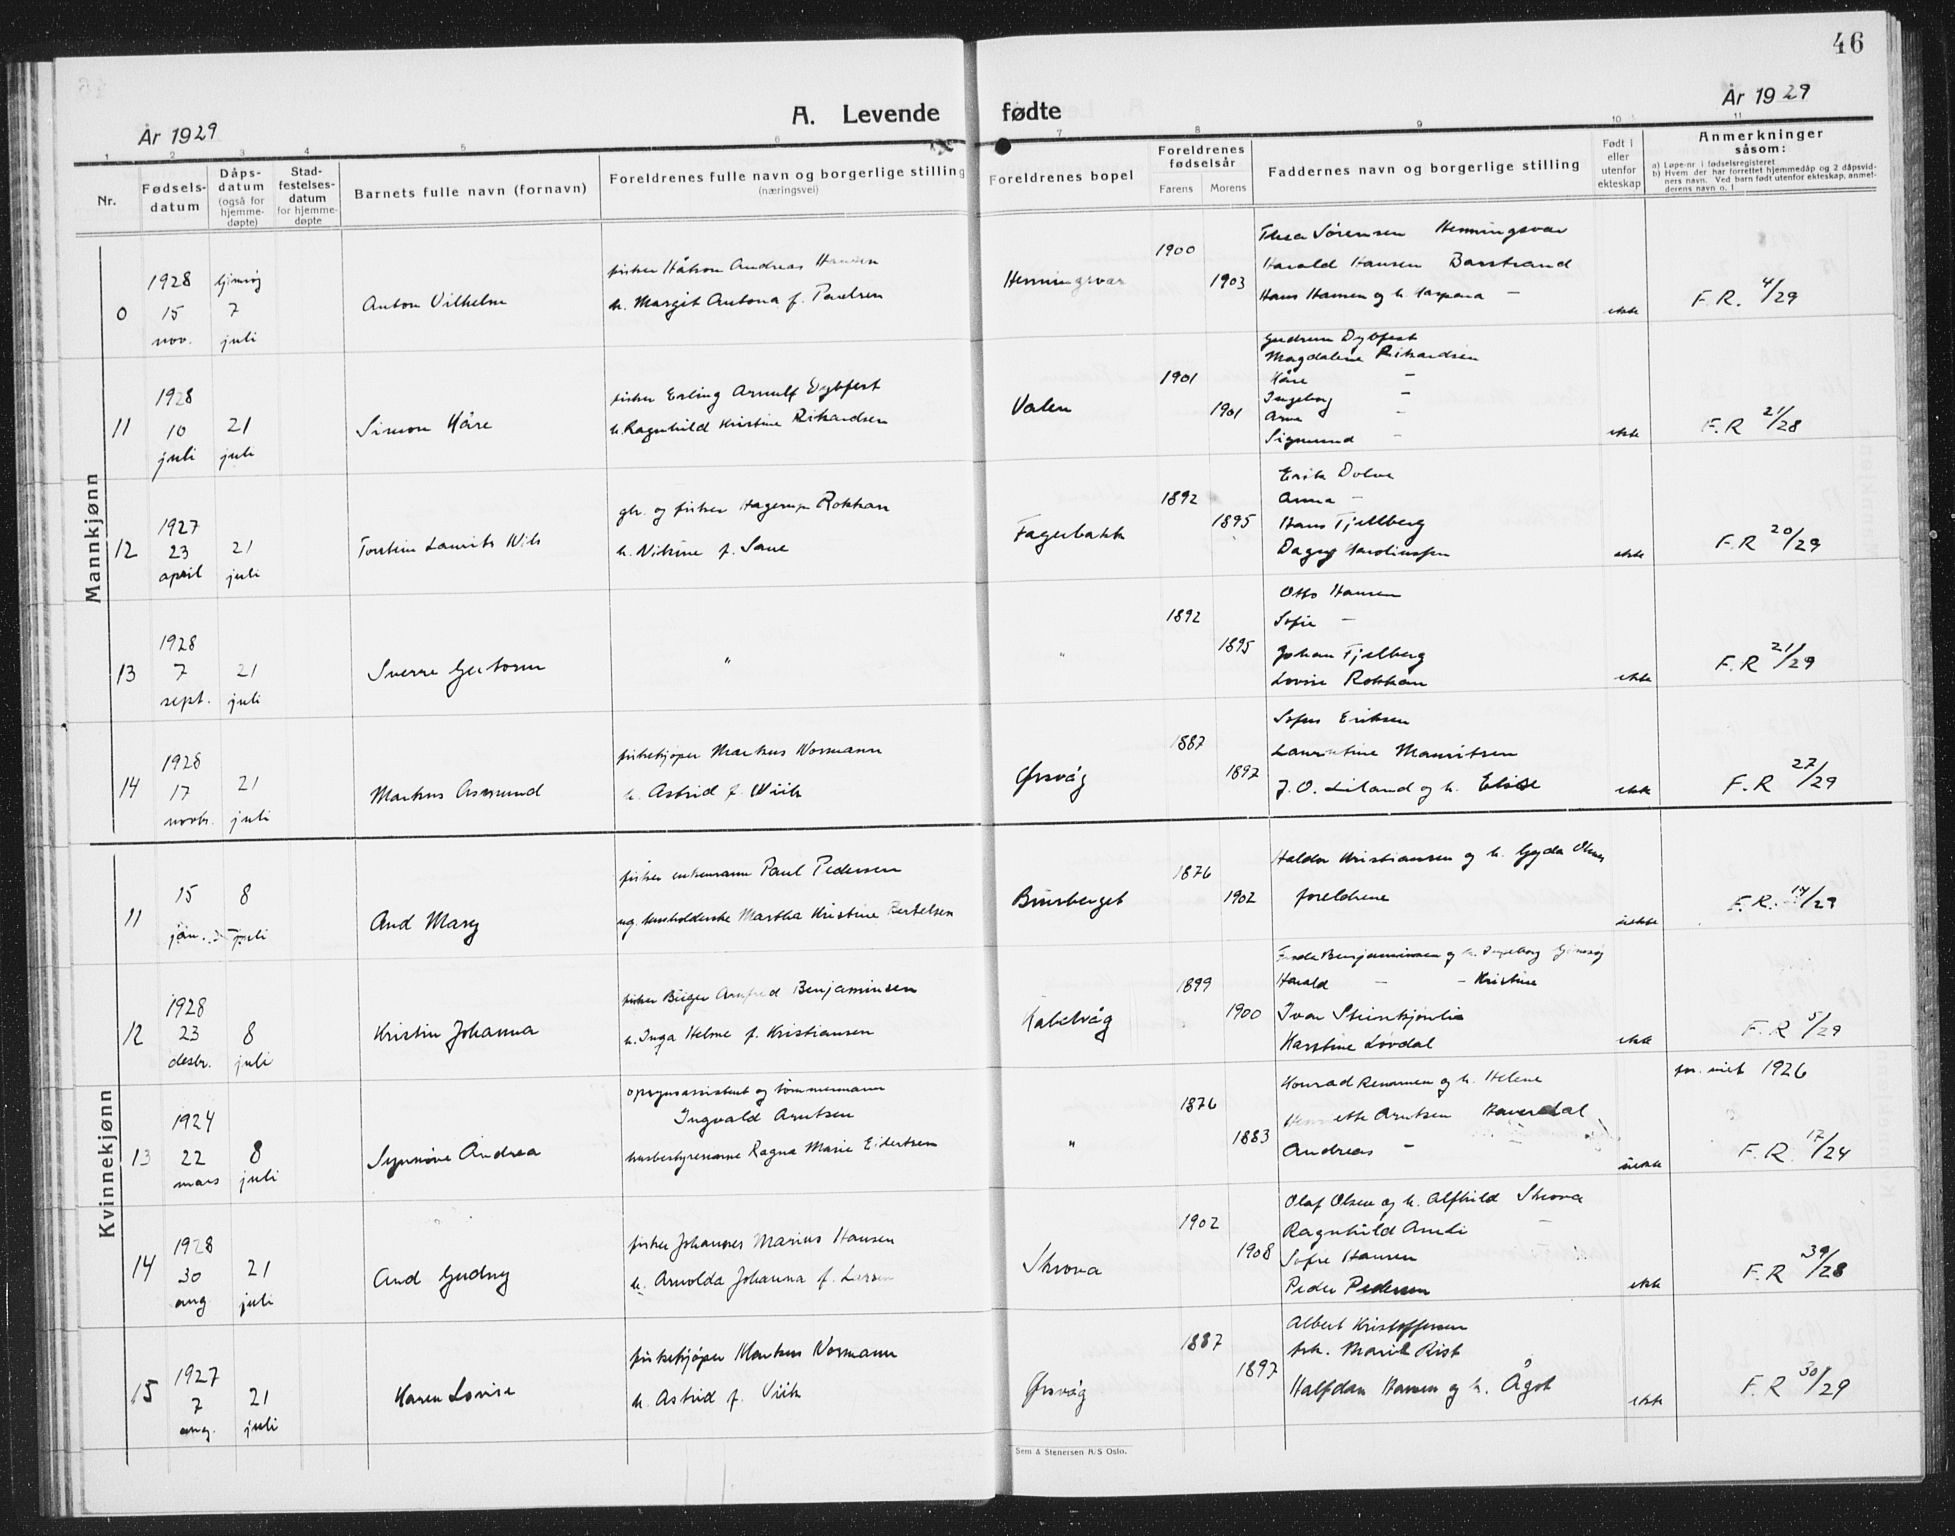 46
År 1929
A. Levende fødte
År 1929
1 2 3 4 5 6 7 8 9 10 11
Nr.
Fødsels-
datum
Dåps-
datum
(også for
hjemme-
døpte)
Stad-
festelses-
datum
for hjemme-
døpte
Barnets fulle navn (fornavn)
Foreldrenes fulle navn og borgerlige stilling
(næringsvei)
Foreldrenes bopel
Foreldrenes
fødselsår
Farens Morens
Faddernes navn og borgerlige stilling
Født i
eller
utenfor
ekteskap
Anmerkninger
såsom:
a) Løpe-nr i fødselsregisteret
b) Hvem der har forrettet hjemmedåp og 2 dåpsvid-
ners navn. Ved barn født utenfor ekteskap, anmel-
derens navn o. l
Mannkjønn
0
1928
15
nov.
Gimsøy
7
juli
Anton Vilhelm
fisker Håkon Andreas Hansen
h. Margit Antona f. Paulsen
Henningsvær
1900
1903
Thea Sørensen Henningsvær
Harald Hansen Barstrand
Hans Hansen og h. Kaspara –
ekte
F.R. 4/29
11
1928
10
juli
21
juli
Simon Kåre
fisker Erling Arnulf Dybfest
h. Ragnhild Kristine Rikardsen
Valen
1901
1901
Gudrun Dybfest
Magdalene Rikardsen
Kåre –
Ingeborg –
Arne –
Sigmund –
ekte
F.R 21/28
12
1927
23
april
21
juli
Torstein Laurits Nils
gbr. og fisker Hagerup Rokkan
h. Nikine f. Sane
Fagerbakk
1892
1895
Erik Dolve
Anna –
Hans Fjellberg
Dagny Karolinussen
ekte
F.R 20/29
13
1928
7
sept.
21
juli
Sverre Guttorm
"
"
1892
1895
Otto Hansen
Sofie –
Johan Fjelberg
Lovise Rokkan
ekte
F.R 21/29
14
1928
17
novbr.
21
juli
Markus Asmund
fiskekjøper Markus Normann
h. Astrid f. Wiik
Ørsvåg
1887
1897
Sofus Eriksen
Laurentine Mauritsen
J. O. Liland og h. Elise
ekte
F.R 27/29
Kvinnekjønn
11
15
jan.
8
juli
Aud Mary
fisker enkemann Paul Pedersen
ug. husholderske Martha Kristine Bertelsen
Brurberget
1876
1902
Haldor Kristiansen og h. Gyda
foreldrene
uekte
F.R. 14/29
12
1928
23
desbr.
8
juli
Kristin Johanna
fisker Birger Arnfred Benjaminsen
h. Inga Helene f. Kristiansen
Kabelvåg
1899
1900
Benjaminsen og h. Ingeborg Gimsøy
Harald – – Kristine
Ivar Steinkjønli
Karstine Løvdal
ekte
F.R 5/29
13
1924
22
mars
8
juli
Synnøve Andrea
opsynsassistent og tømmermann
Ingvald Arntsen
husbestyrerinne Ragna Marie Eidertsen
"
1876
1883
Konrad Renomen og h. Helene
Henriette Arntsen Haverdal
Andreas –
uekte
for. viet 1926
F.R. 17/24
14
1928
30
aug
21
juli
Aud Gudny
fisker Johannes Marius Hansen
h. Arnolda Johanna f. Larsen
Skrova
1902
1908
Olaf Olsen og h. Alfhild Skrova
Ragnhild Arndi –
Sofie Hansen
Peder Pedersen
ekte
F.R 39/28
15
1927
7
aug.
21
juli
Karen Lovise
fiskekjøper Markus Normann
h. Astrid f. Viik
Ørsvåg
1887
1897
Albert Kristoffersen
frk. Marie Rist
Halfdan Hansen og h. Ågot
ekte
F.R 30/29
Sem & Stenersen A/S Oslo.